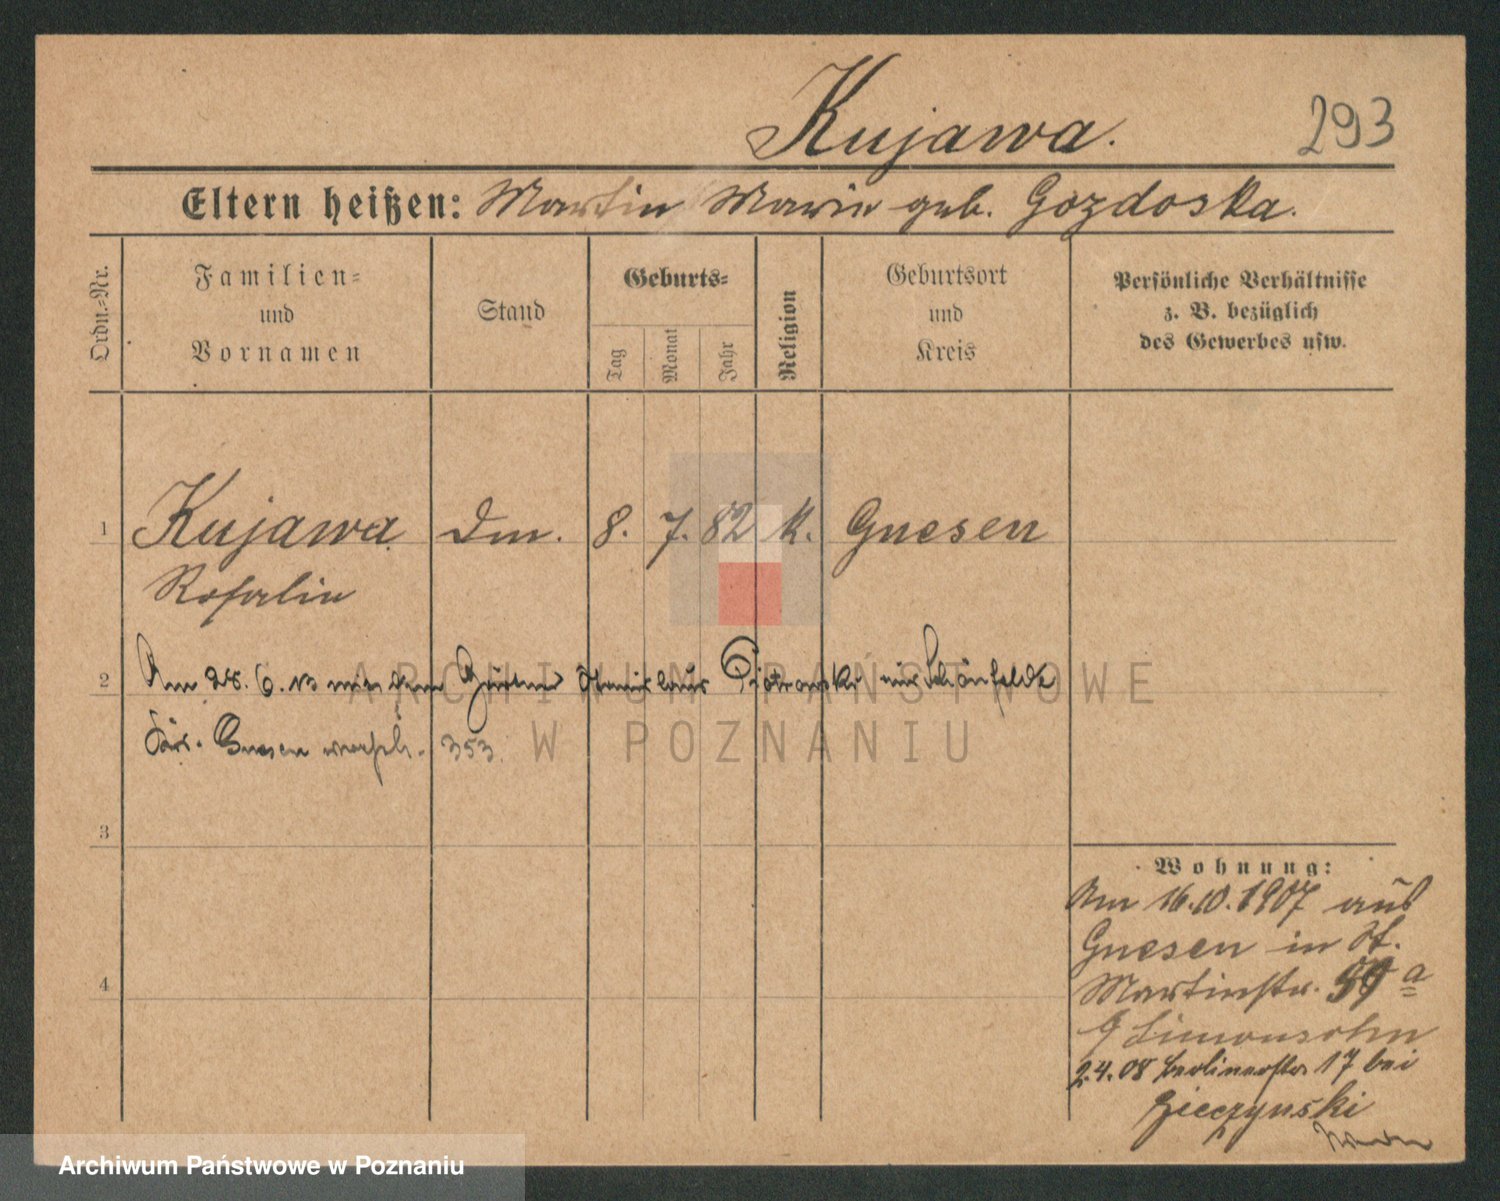 Kujawa. 293
Eltern heißen: Martin Marie geb. Gozdoska.
Ordn.=Nr.
Familien=
und
Vornamen
Stand
Geburts=
Tag
Monat
Jahr
Religion
Geburtsort
und
Kreis
Persönliche Verhältnisse
z. B. bezüglich
des Gewerbes usw.
1 Kujawa Dm. 8. 7. 82 K. Gnesen
Rosalie
2 Am 6. 13 mit dem Stanislaus Piotrowski aus Schönfelde
Gnesen 353.
3
4
Wohnung:
Am 16.10.1907 aus
Gnesen in St.
Martinstr. a
Simonsohn
2.4.08 Berlinerstr 17 bei
Zieczynski
ARCHIWUM PAŃSTWOWE
W POZNANIU
Archiwum Państwowe w Poznaniu